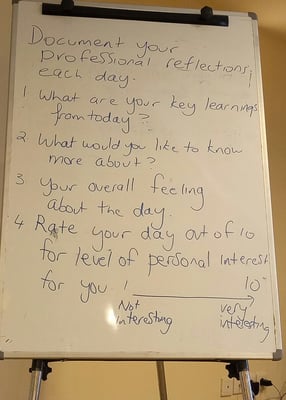 Document your
professional reflections;
each day.
1 What are your key learnings
from today?
2 What would you like to know
more about?
3 Your overall feeling
about the day.
4 Rate your day out of 10
for level of personal interest
for you. 1 10
Not very
interesting interesting